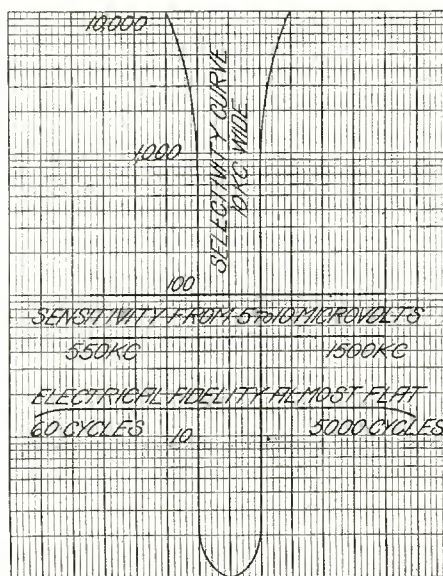 10,000
SELECTIVITY CURVE
10 KC WIDE
1,000
100
SENSITIVITY FROM 5 TO 10 MICROVOLTS
550KC 1500KC
ELECTRICAL FIDELITY ALMOST FLAT
60 CYCLES 10 5000 CYCLES